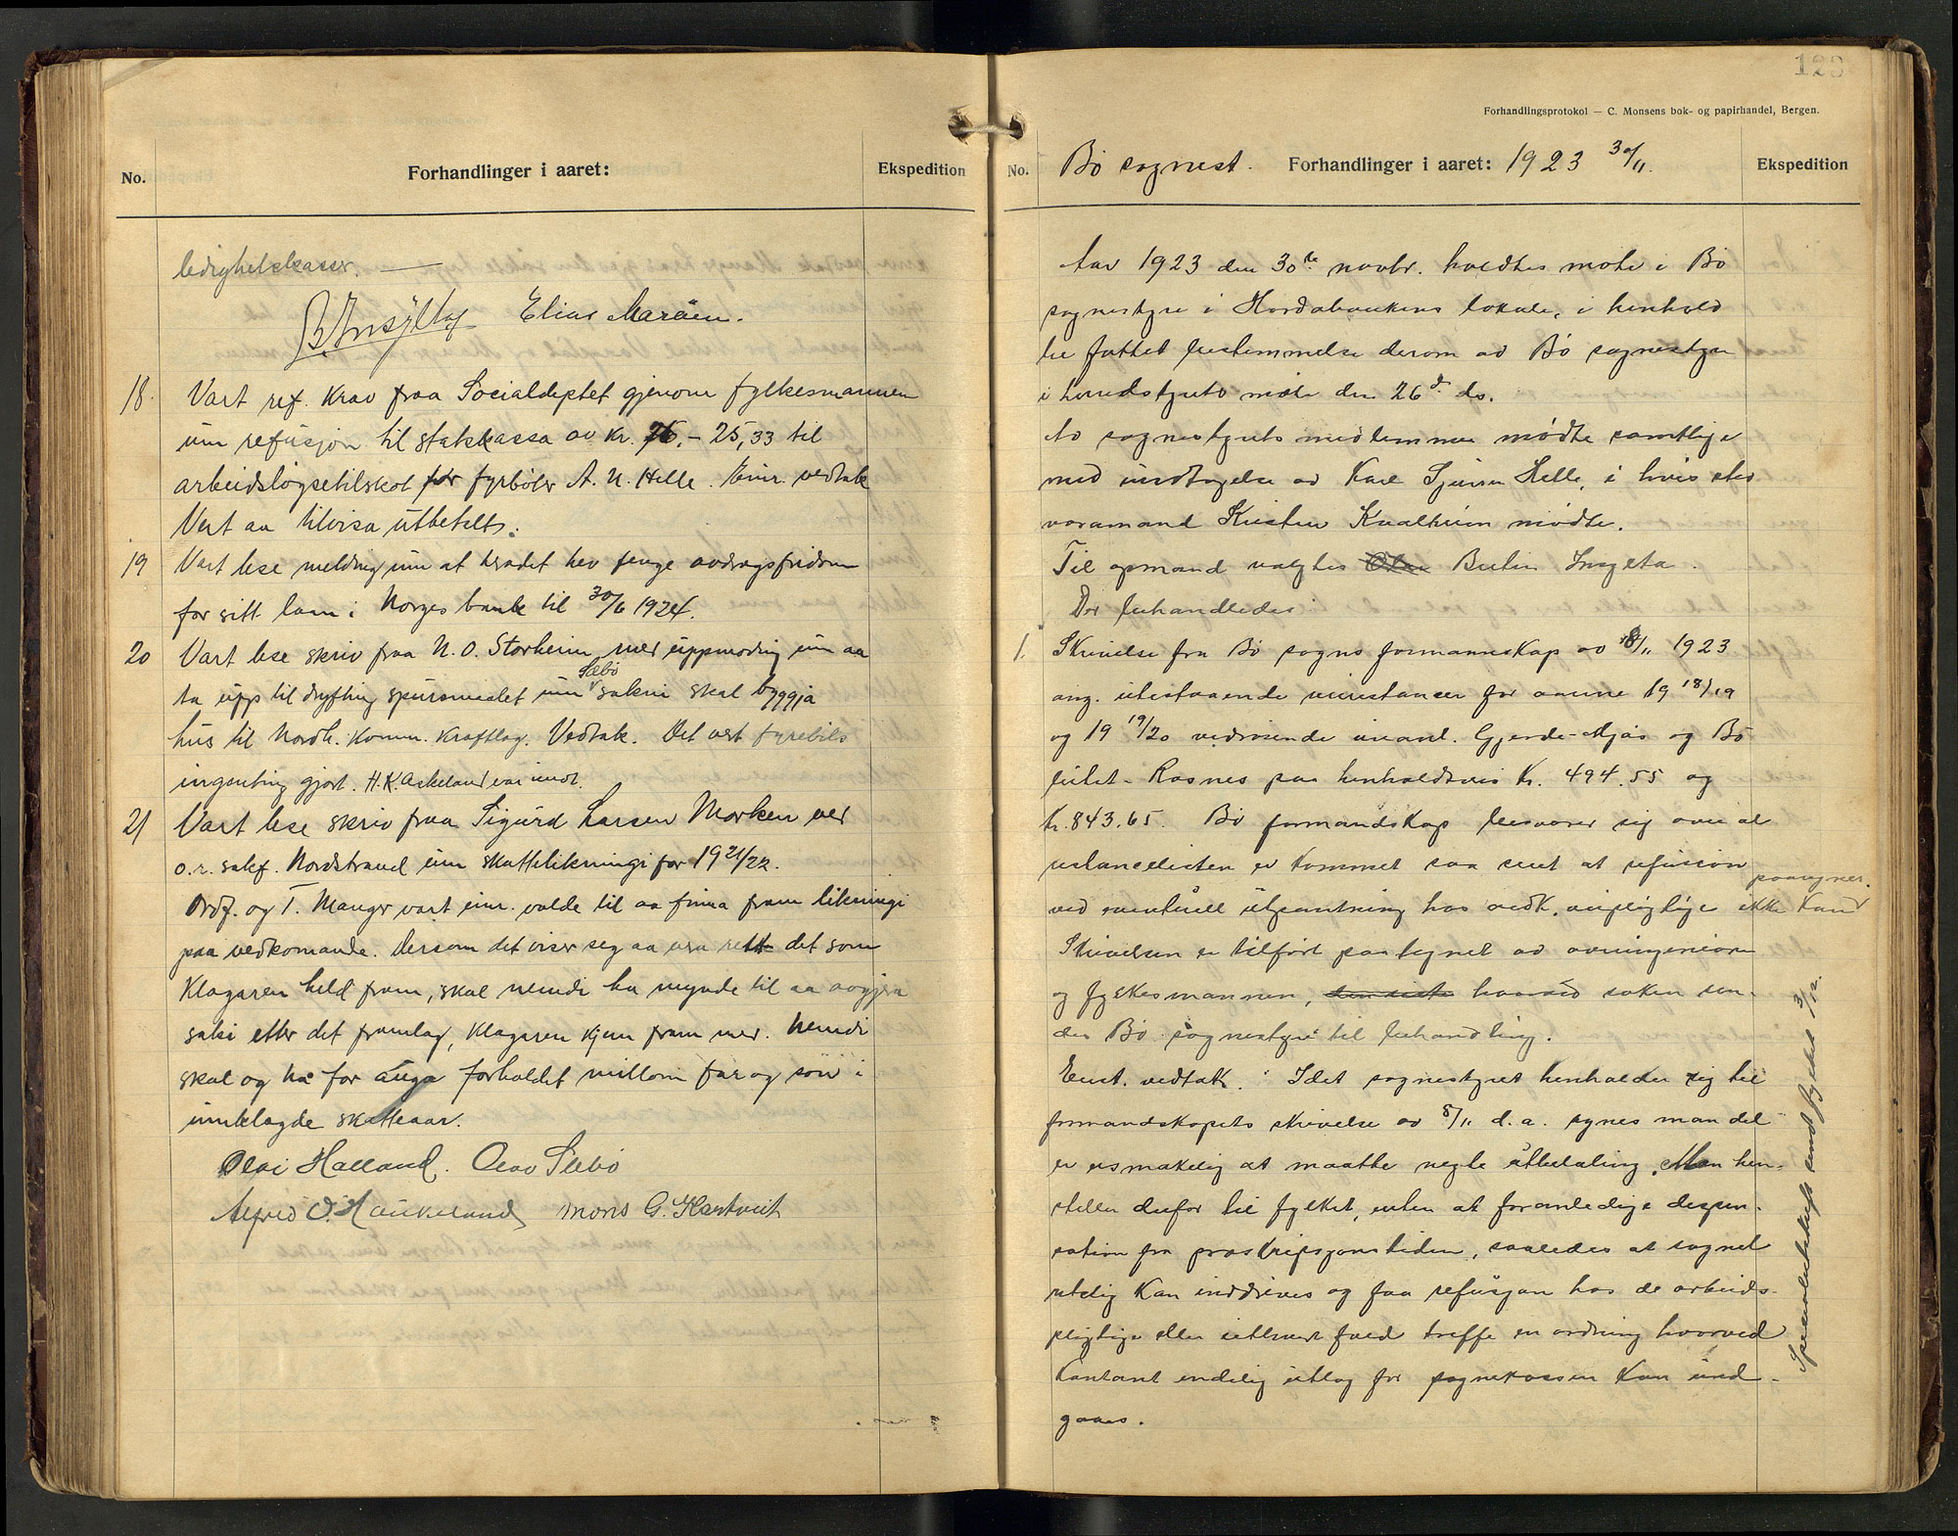 No.
Forhandlinger i aaret:
Ekspedition
ledighetskasser.
Elias Maraien.
18. Vart ref. krav fraa Socialdeptet gjenom fylkesmannen
um refusjon til statskassa av kr. 76.- 25,33 til
arbeidsløysetilskot for fyrbøter A. N. Helle. Einr. vedtak
Vert aa tilvisa utbetalt.
19 Vart lese melding um at heradet hev fenge avdragsfridom
for sitt laan i Norges bank til 30/6 1924.
20 Vart lese skriv fraa N. O. Storheim med uppmoding um aa
ta upp til dryfting spursmaalet um Sæbø sokni skal byggja
hus til Nordh. komm. Kraftlag. Vedtak. Det vert fyrebils
ingenting gjort. H. K. Askeland var imot.
21 Vart lese skriv fraa Sigurd Larsen Marken ved
o.r. sakf. Nordstrand um skattelikningi for 1921/22.
Ordf. og T. Manger vart einr. valde til aa finna fram likningi
paa vedkomande. Dersom det viser seg aa vera rett det som
Klagaren held fram, skal nemdi ha mynde til aa avgjera
saki etter det framlag, klagaren kjem fram med. Nemdi
skal og ha for auga forholdet millom far og son i
innklagde skatteaar.
Olai Halland. Olav Sæbø
Alfred O. Haukeland Mons G. Hartveit
129
Forhandlingsprotokol — C. Monsens bok- og papirhandel, Bergen.
No.
Bø sognest. Forhandlinger i aaret: 1923 30/11.
Ekspedition
Aar 1923 den 30te novbr. holdtes møte i Bø
sognestyre i Hordabankens lokale, i henhold
til fattet bestemmelse derom av Bø sognestyre
i herredstyrets møte den 26de ds.
Av sognestyrets medlemmer mødte samtlige
med undtagelse av Karl Sjursen Helle, i hvis sted
varamand Kristen Kvalheim mødte.
Til opmand valgtes Olav Bertin Insylta.
Der behandledes:
1. Skrivelse fra Bø sogns formannskap av 8/11 1923
ang. utestaaende veirestanser for aarene 19 18/19
og 19 19/20 vedrørende veianl. Gjerde-Mjøs og Bø-
leitet - Rosnes paa henholdsvis kr. 494.55 og
kr. 843.65. Bø formandskap besværer sig over at
restanselisten er kommet saa sent at refusion
ved eventuell utpantning hos vedk. veipligtige ikke kan paaregnes.
Skrivelsen er tilført paategnet av aveningeniøren
og fylkesmannen, den siste hvorved saken sen-
des Bø sognestyre til behandling.
Enst. vedtak: Idet sognestyret henholder sig til
formandskapets skrivelse av 8/11 d.a. synes man det
er usmakelig at maatte negte utbetaling. Man hen-
stiller derfor til fylket, enten at foranledige dispen-
sation fra præskripsjonstiden, saaledes at sognet
retslig kan inddrives og faa refusjon hos de arbeids-
pligtige eller iethvert fald treffe en ordning hvorved
kontant endelig utlæg for sognekassen kan und-
gaaes.
Særutskrift sendt fylket 3/12.